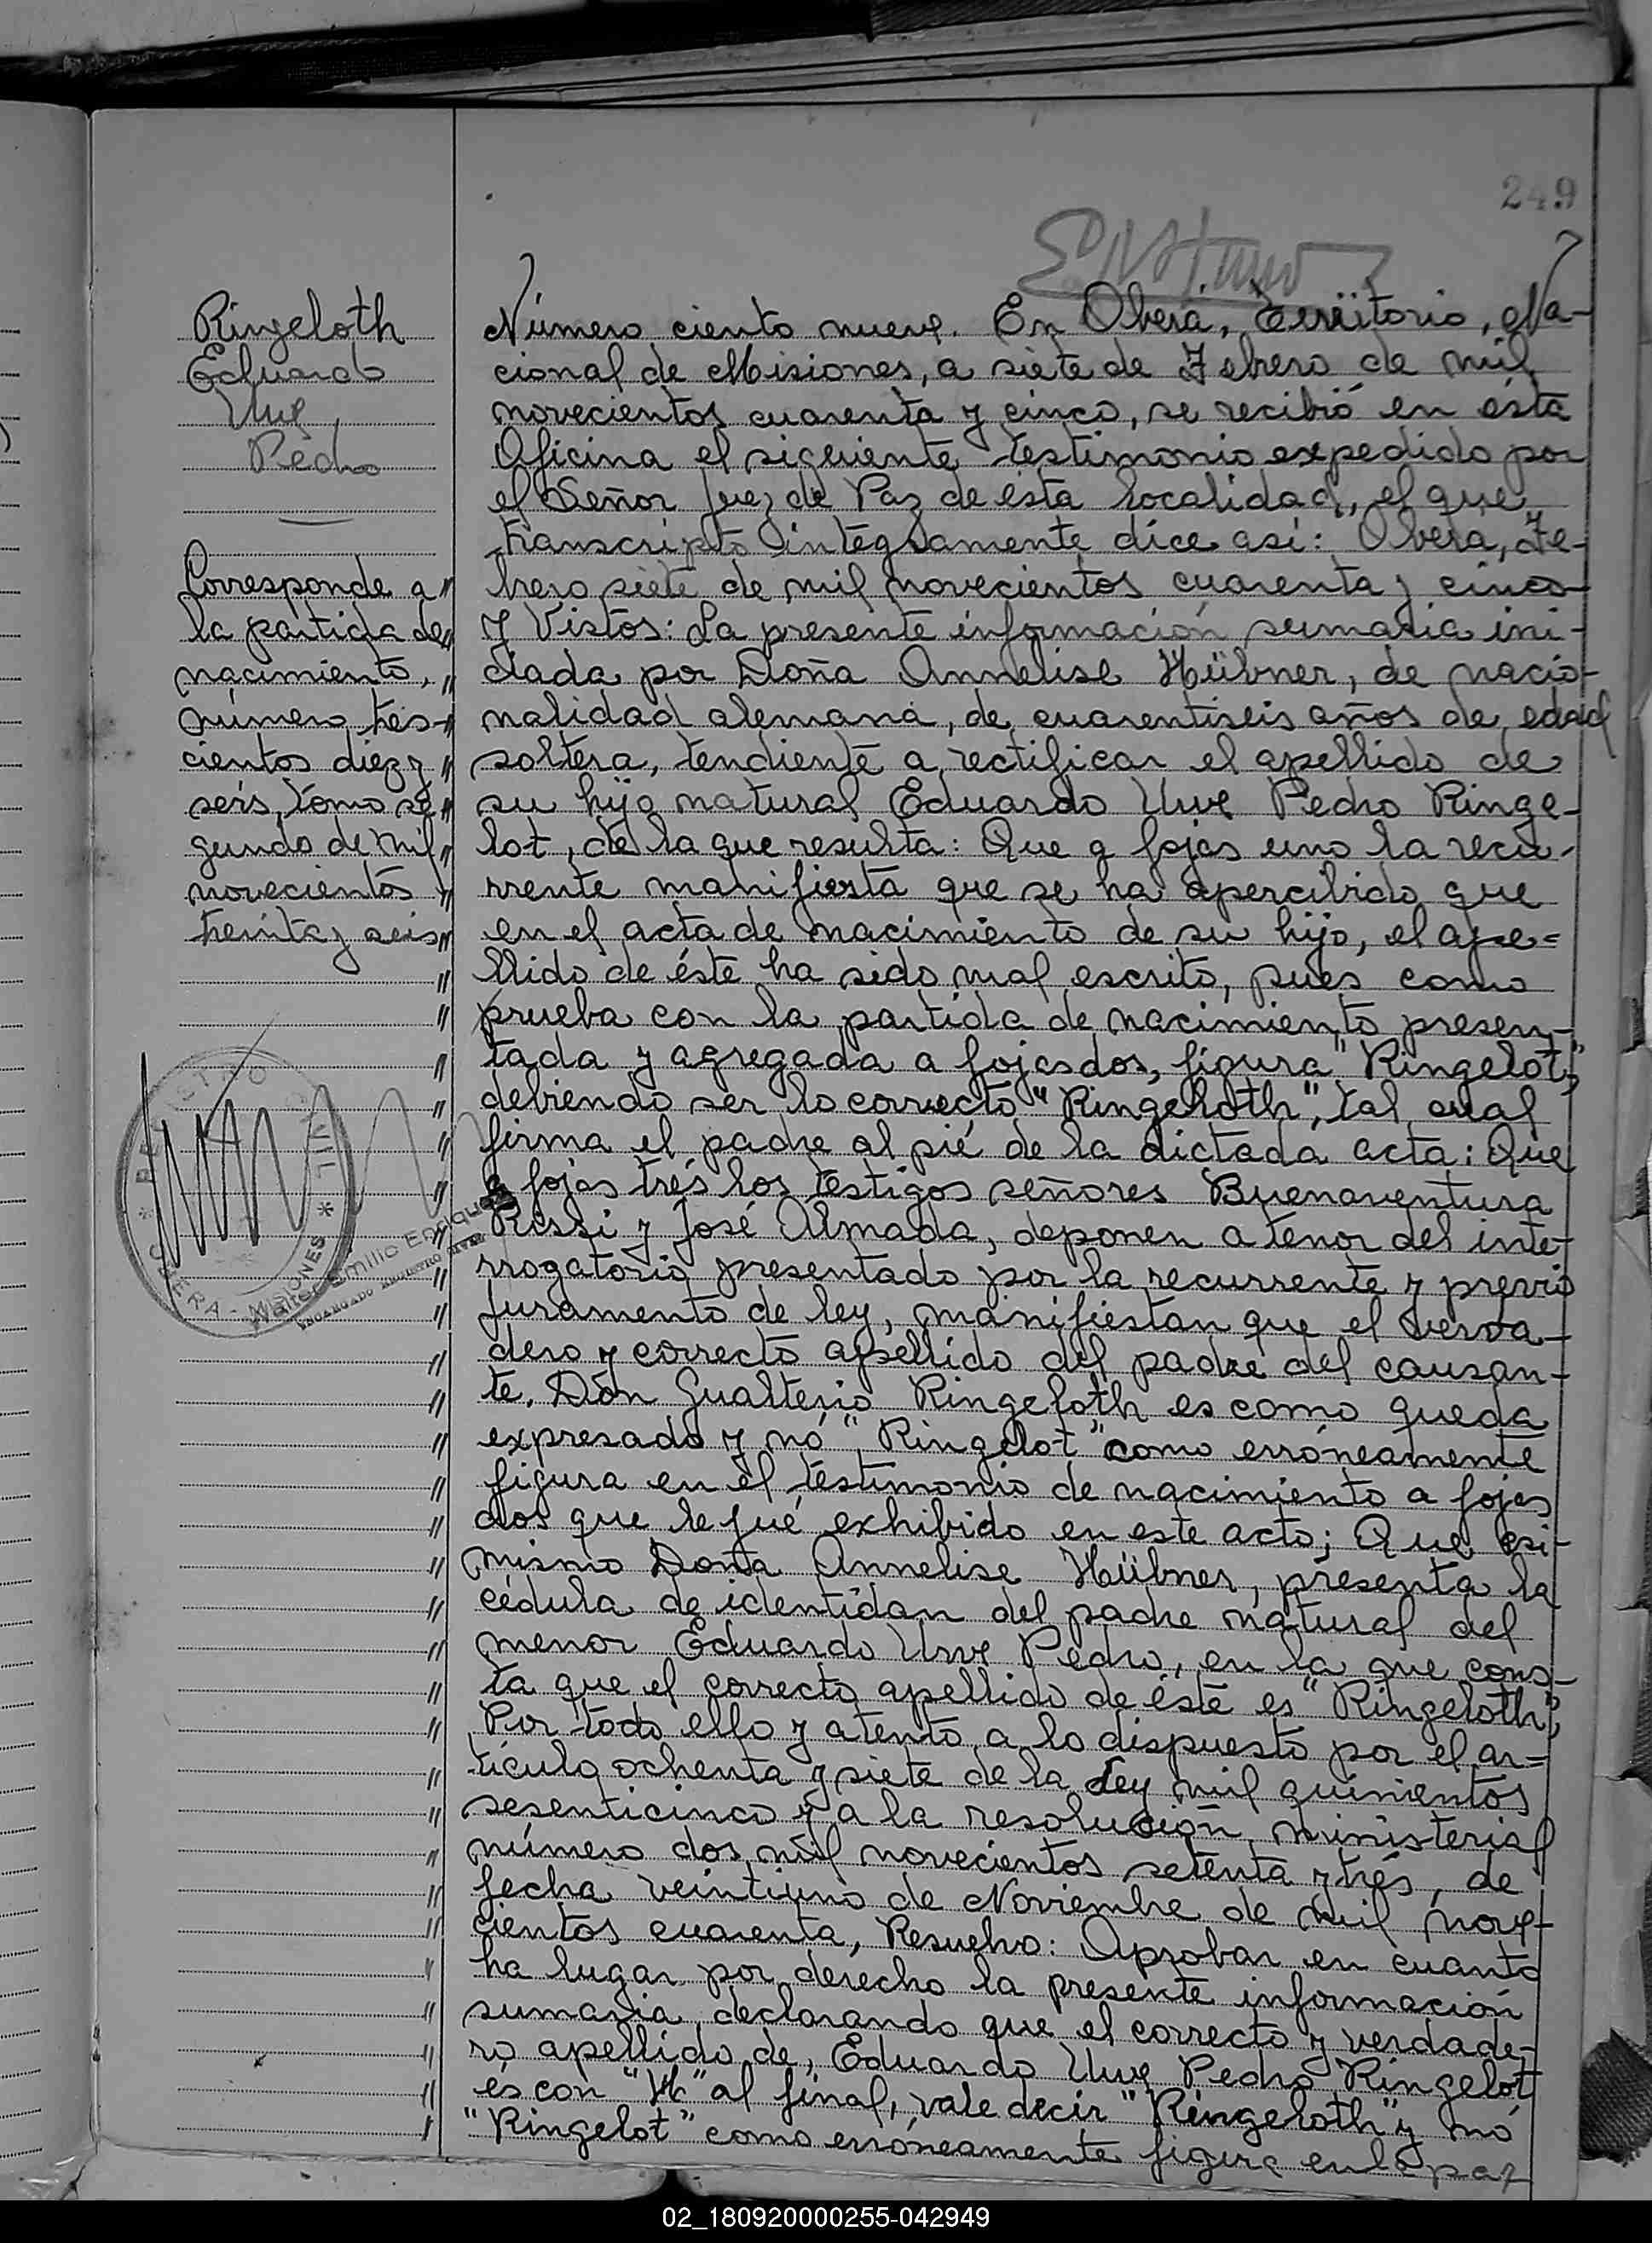 249
Ringeloth
Eduardo
Uwe
Pedro
Corresponde a
la partida de
nacimiento,
número tres-
cientos diez y
seis, tomo se
gundo de mil
novecientos
treinta y seis
REGISTRO CIVIL
OBERA - MISIONES
Walter Emilio Enrique
ENCARGADO REGISTRO CIVIL
Número ciento nueve. En Oberá, Territorio, Na-
cional de Misiones, a siete de Febrero de mil
novecientos cuarenta y cinco, se recibió en ésta
Oficina el siguiente testimonio expedido por
el Señor Juez de Paz de ésta localidad, el que
transcripto integramente dice asi: "Oberá, Fe-
brero siete de mil novecientos cuarenta y cinco-
Y Vistos: La presente información sumaria ini-
ciada por Doña Annelise Hübner, de nacio-
nalidad alemana, de cuarentiseis años de edad
soltera, tendiente a rectificar el apellido de
su hijo natural Eduardo Uwe Pedro Ringe-
lot, de la que resulta: Que a fojas uno la recu-
rrente manifiesta que se ha apercibido que
en el acta de nacimiento de su hijo, el ape=
llido de éste ha sido mal escrito, pues como
prueba con la partida de nacimiento presen-
tada y agregada a fojas dos, figura "Ringelot",
debiendo ser lo correcto "Ringeloth", tal cual
firma el padre al pié de la dictada acta: Que
a fojas trés los testigos señores Buenaventura
Rissi y José Almada, deponen a tenor del inte-
rrogatorio presentado por la recurrente y previo
juramento de ley, manifiestan que el verda-
dero y correcto apellido del padre del causan-
te, Don Gualterio Ringeloth es como queda
expresado y nó "Ringelot" como erróneamente
figura en el testimonio de nacimiento a fojas
dos que le fué exhibido en este acto; Que asi-
mismo Doña Annelise Hübner, presenta la
cédula de identidan del padre natural del
menor Eduardo Uwe Pedro, en la que cons-
ta que el correcto apellido de éste es "Ringeloth",
Por todo ello y atento a lo dispuesto por el ar=
tículo ochenta y siete de la Ley mil quinientos
sesenticinco y a la resolución ministerial
número dos mil novecientos setenta y trés, de
fecha veintiuno de Noviembre de mil nove-
cientos cuarenta, Resuelvo: Aprobar en cuanto
ha lugar por derecho la presente información
sumaria, declarando que el correcto y verdade-
ro apellido de, Eduardo Uwe Pedro Ringelot
és con "H" al final, vale decir "Ringeloth" y nó
"Ringelot" como erróneamente figura en la par
02_180920000255-042949